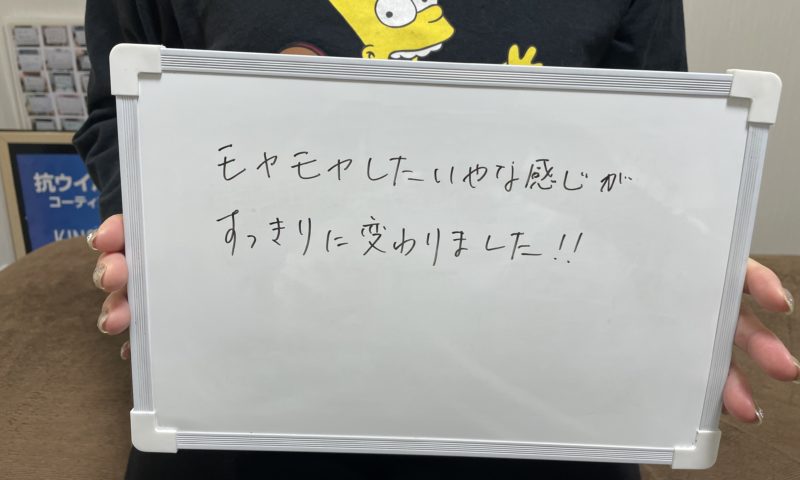 モヤモヤしたいやな感じが
すっきりに変わりました!!
抗ウイル
コーティ
KING